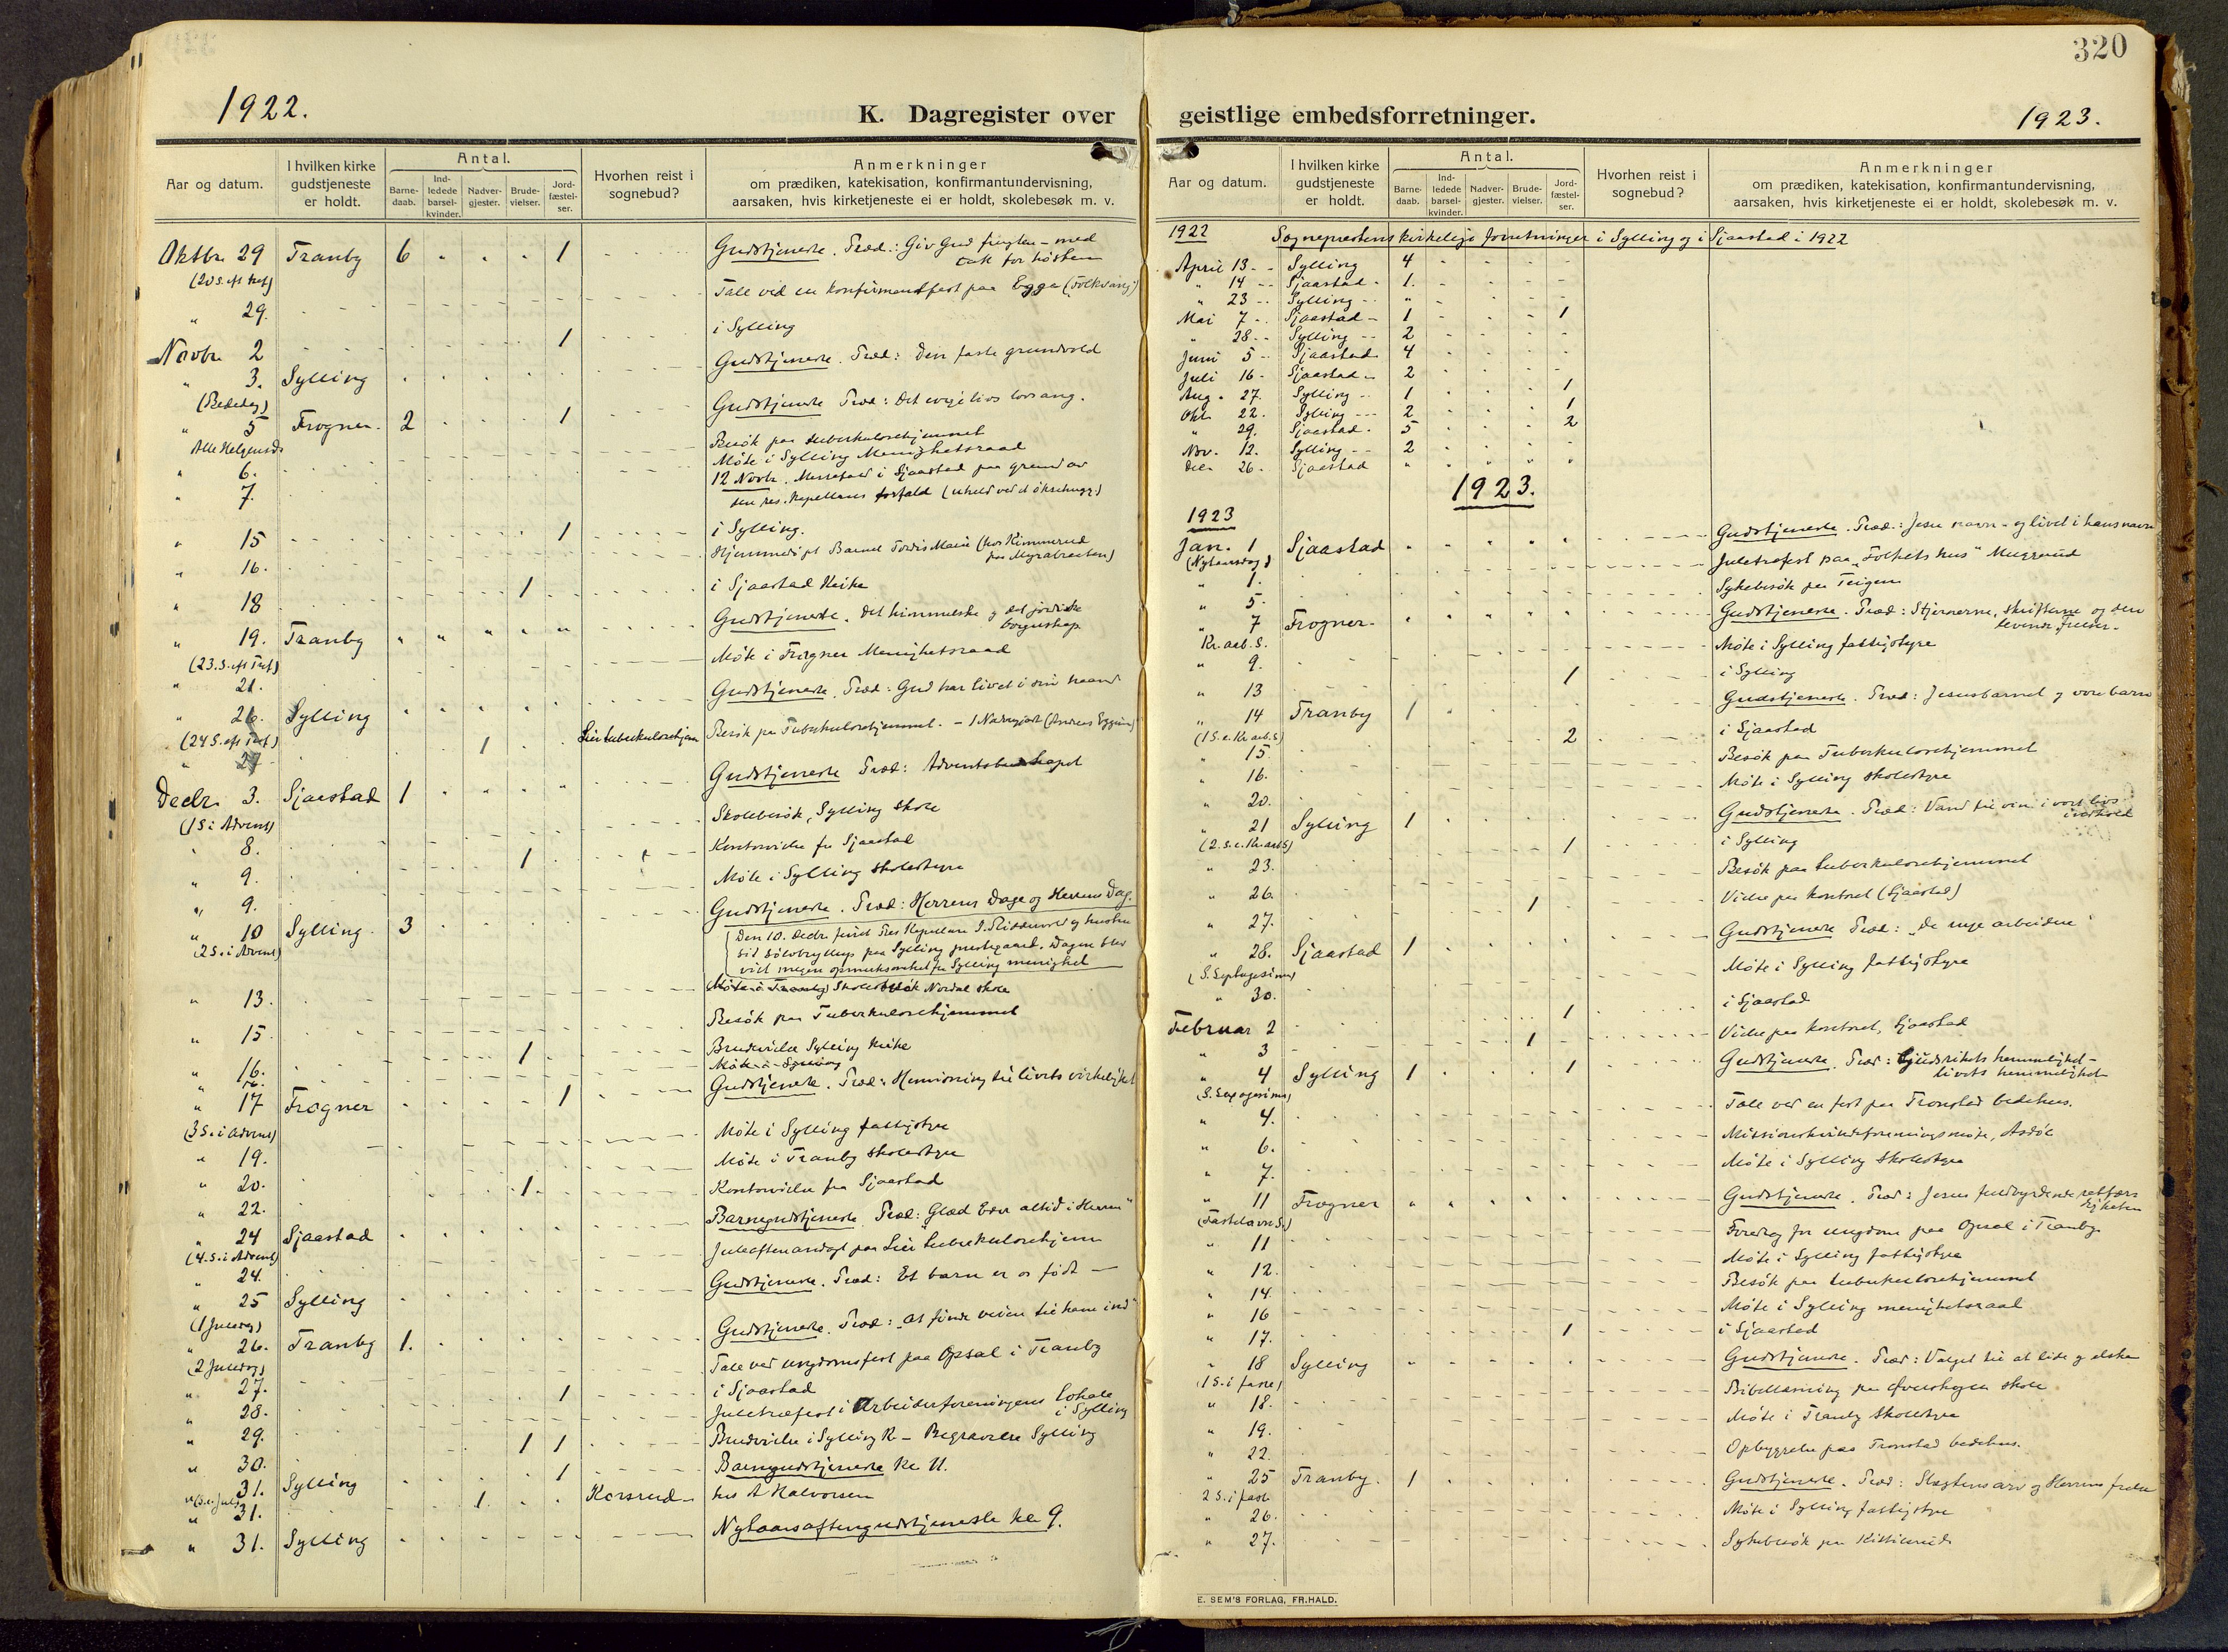 320
1922.
K. Dagregister over
geistlige embedsforretninger.
1923.
Aar og datum.
I hvilken kirke gudstjeneste er holdt.
Antal.
Barne-daab.
Ind-ledede barsel-kvinder.
Nadver-gjester.
Brude-vielser.
Jord-fæstel-ser.
Hvorhen reist i sognebud?
Anmerkninger
om prædiken, katekisation, konfirmantundervisning,
aarsaken, hvis kirketjeneste ei er holdt, skolebesøk m. v.
Oktbr. 29 Tranby 6 1 Gudstjeneste. Præd.: Giv Gud frugten - med
tak for høsten
(20 S. eft Tref)
" 29. Tale ved en konfirmantfest paa Egge (Folkvang)
Novbr 2 1 i Sylling
" 3. Sylling Gudstjeneste. Præd: Den faste grundvold
(Bededag)
" 5 Frogner. 2 1 Gudstjeneste Præd: Det evige livs lovsang.
Alle Helgensd.
" 6. Besøk paa tuberkulosehjemmet
" 7. Møte i Sylling Menighetsraad
12 Novbr. Messefald i Sjaastad paa grund av
den res. kapellans forfald
" 15 1 i Sylling.
" 16. Hjemmedøpt Barnet Tordis Marie (hos Kimmerud
paa Myrabraaten)
" 18 1 i Sjaastad Kirke
" 19. Tranby Gudstjeneste. Det himmelske og det jordiske
borgerskap
(23. S. eft Tref)
" 21. Møte i Frogner Menighetsraad
" 26. Sylling Gudstjeneste. Præd: Gud har livet i sin haand
(24 S. eft Tref)
" 27 1 Lier tuberkulosehjem Besøk paa Tuberkulosehjemmet. - 1 Nadvergjest
Decbr. 3. Sjaastad 1 Gudstjeneste Præd: Adventsbudskapet
(1 S. i Advent)
" 8. Skolebesøk, Sylling skole
" 9. 1 Kontorvielse fra Sjaastad
" 9. Møte i Sylling skolestyre
" 10 Sylling. 3 Gudstjeneste. Præd: Herrens Dage og Herrens Dag.
(2 S. i Advent)
Den 10. Decbr feiret Res Kapellan og hustru
sit sølvbryllup paa Sylling prestegaard. Dagen blev
vist megen opmerksomhet fra Sylling menighet
" 13. Møte i Tranby Skolebesøk Nordal skole
" 15. Besøk paa Tuberkulosehjemmet
" 16. 1 Brudevielse Sylling Kirke
" 16. Møte i Sylling
" 17 Frogner 1 Gudstjeneste. Præd: Henvisning til livets virkelighet
(3 S. i Advent)
" 19. Møte i Sylling fattigstyre
" 20. Møte i Tranby skolestyre
" 22. 1. Kontorvielse fra Sjaastad
" 24 Sjaastad Barnegudstjeneste Præd: "Glæd Eder altid i Herren"
(4. S. i Advent)
" 24. Juleaftenandagt paa Lier tuberkulosehjem
" 25 Sylling Gudstjeneste. Præd: Et barn er os født -
(1 Juledag)
" 26. Tranby 1. Gudstjeneste. Præd: "At finde veien til ham ind"
(2 Juledag)
" 27. Tale ved ungdomsfest paa Opsal i Tranby
" 28. 1 i Sjaastad
Juletræfest i Arbeiderforeningens lokale
i Sylling
" 29. 1 1 Brudevielse i Sylling K - Begravelse Sylling
" 30. 1
" 31. Sylling Barnegudstjeneste kl 11.
" 31. 1. Korsrud hos A Halvorsen
" 31. Sylling Nytaarsaftengudstjeneste kl 9.
Aar og datum.
I hvilken kirke gudstjeneste er holdt.
Antal.
Barne-daab.
Ind-ledede barsel-kvinder.
Nadver-gjester.
Brude-vielser.
Jord-fæstel-ser.
Hvorhen reist i sognebud?
Anmerkninger
om prædiken, katekisation, konfirmantundervisning,
aarsaken, hvis kirketjeneste ei er holdt, skolebesøk m. v.
1922 Sogneprestens kirkelige forretninger i Sylling og i Sjaastad i 1922
April 13 Sylling 4
" 14 Sjaastad 1.
" 23 Sylling "
Mai 7 Sjaastad 1 1
" 28 Sylling 2
Juni 5 Sjaastad 4
Juli 16 Sjaastad 2
Aug. 27. Sylling 1 1
Okt. 22. Sylling 2 1
" 29. Sjaastad. 5 2
Nov. 12. Sylling 2
Decbr. 26. Sjaastad "
1923.
1923
Jan. 1 Sjaastad Gudstjeneste. Præd.: Jesu navn - og livet i hans navn
(Nytaarsdag)
" 1. Juletrefest paa "Folkets hus" Muggerud
" 5. Sykebesøk paa Teigen
" 7 Frogner. Gudstjeneste. Præd: Stjernerne, skrifterne og den
levende frelser.
Kr. aab. S.
" 9. Møte i Sylling fattigstyre
" 13 1 i Sylling
" 14 Tranby 1 Gudstjeneste. Præd: Jesusbarnet og vore barn
(1 S. e. Kr. aab. S)
" 15. 2 i Sjaastad
" 16. Besøk paa Tuberkulosehjemmet
" 20. Møte i Sylling skolestyre
" 21 Sylling 1 Gudstjeneste. Præd: Vand til vin i vort livs
indhold
(2. S. e. Kr. aab S)
" 23. 1 i Sylling
" 26. Besøk paa tuberkulosehjemmet
" 27. 1 Vielse paa kontoret (Sjaastad)
" 28. Sjaastad 1 Gudstjeneste Præd: "De unge arbeidere"
(S. Septuagesima)
" 30. Møte i Sylling fattigstyre
Februar 2 1 i Sjaastad
" 3 1 Vielse paa kontoret, Sjaastad
" 4 Sylling 1 1 Gudstjeneste. Præd: Gudsrikets hemmelighet -
livets hemmelighet
(S. Sexagesima)
" 4. Tale ved en fest paa Tronstad bedehus.
" 6. Missionskvindeforeningsmøte, Asdøl
" 7. Møte i Sylling Skolestyre
" 11 Frogner Gudstjeneste. Præd: Jesus fuldbyrdende retfærdigheten
(Fastelavns S.)
" 11 Foredrag for ungdom paa Opsal i Tranby
" 12. Møte i Sylling fattigstyre
" 14. Besøk paa tuberkulosehjemmet
" 16 Møte i Sylling menighetsraad
" 17. 1 i Sjaastad
" 18 Sylling Gudstjeneste. Præd: Valget til at lide og elske
(1 S. i faste)
" 18. Bibellæsning paa Øverskogen skole
" 19. Møte i Tranby Skolestyre
" 22. Opbyggelse paa Tronstad bedehus.
" 25 Tranby. 1 Gudstjeneste. Præd: Slægtens arv og Herrens frelse
2 S. i faste
" 26. Møte i Sylling fattigstyre
" 27. Sykebesøk paa Kittilsrud
E. SEM'S FORLAG, FR.HALD.